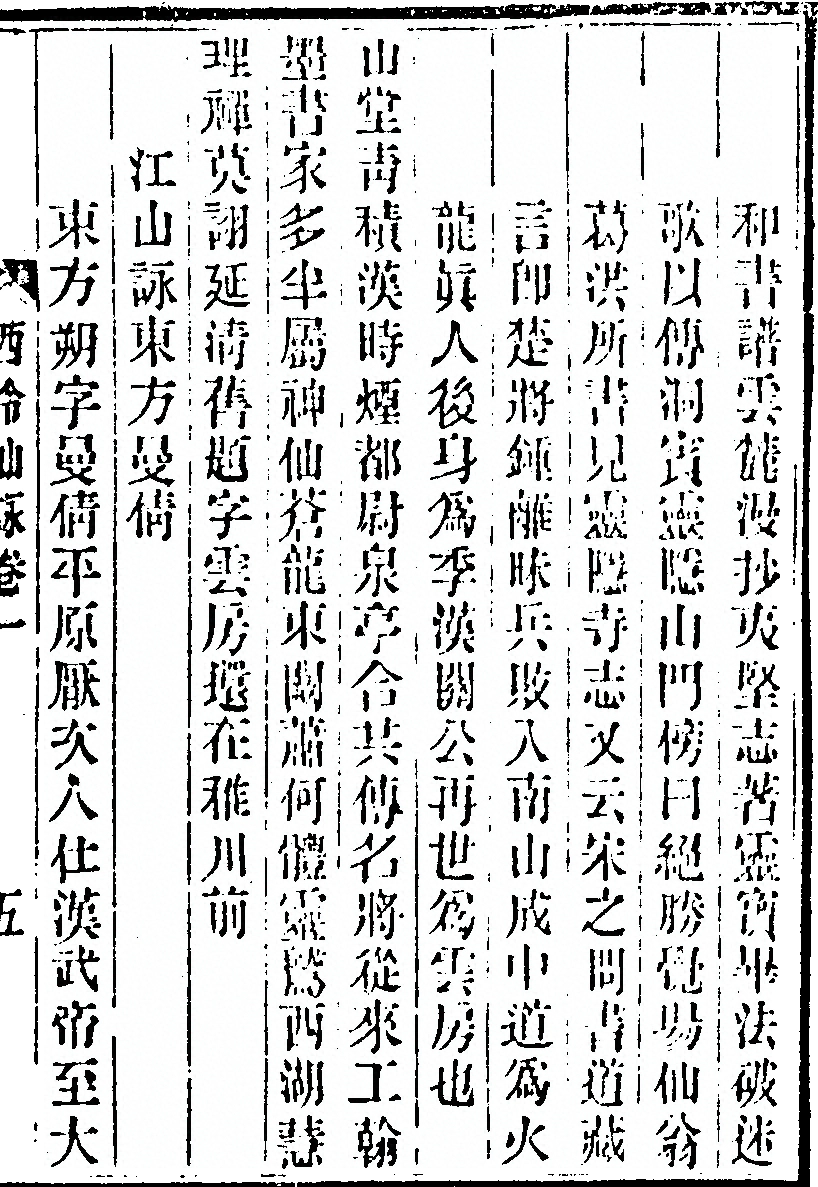 和書譜雲龍波抄夷堅志著靈寶畢法破迷
歌以傳洞賓靈隱山門傍曰絕勝覺場仙翁
葛洪所書見靈隱寺志又云宋之問書道藏
言卽楚將鍾離昧兵敗入南山成中道爲火
龍眞人後身爲季漢關公再世爲雲房也
山堂靑積漢時煙都尉泉亭合共傳名將從來工翰
墨書家多半屬神仙蒼龍東闕蕭何體靈鷲西湖慧
理禪莫詡延淸舊題字雲房還在稚川前
江山詠東方曼倩
東方朔字曼倩平原厭次人仕漢武帝至大
西泠仙詠卷一
五